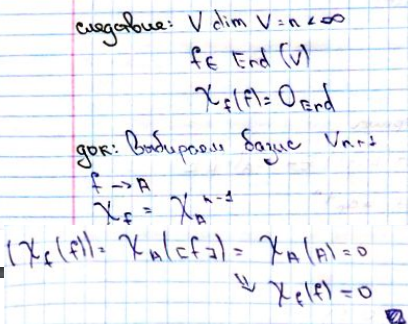 следствие: V dim V = n < ∞
f ∈ End (V)
χ_f(f) = 0_End
док: Выбираем базис V n+1
f → A
χ_f = χ_A^{n-1}
[χ_f(f)] = χ_A([f]) = χ_A(A) = 0
⇓ χ_f(f) = 0